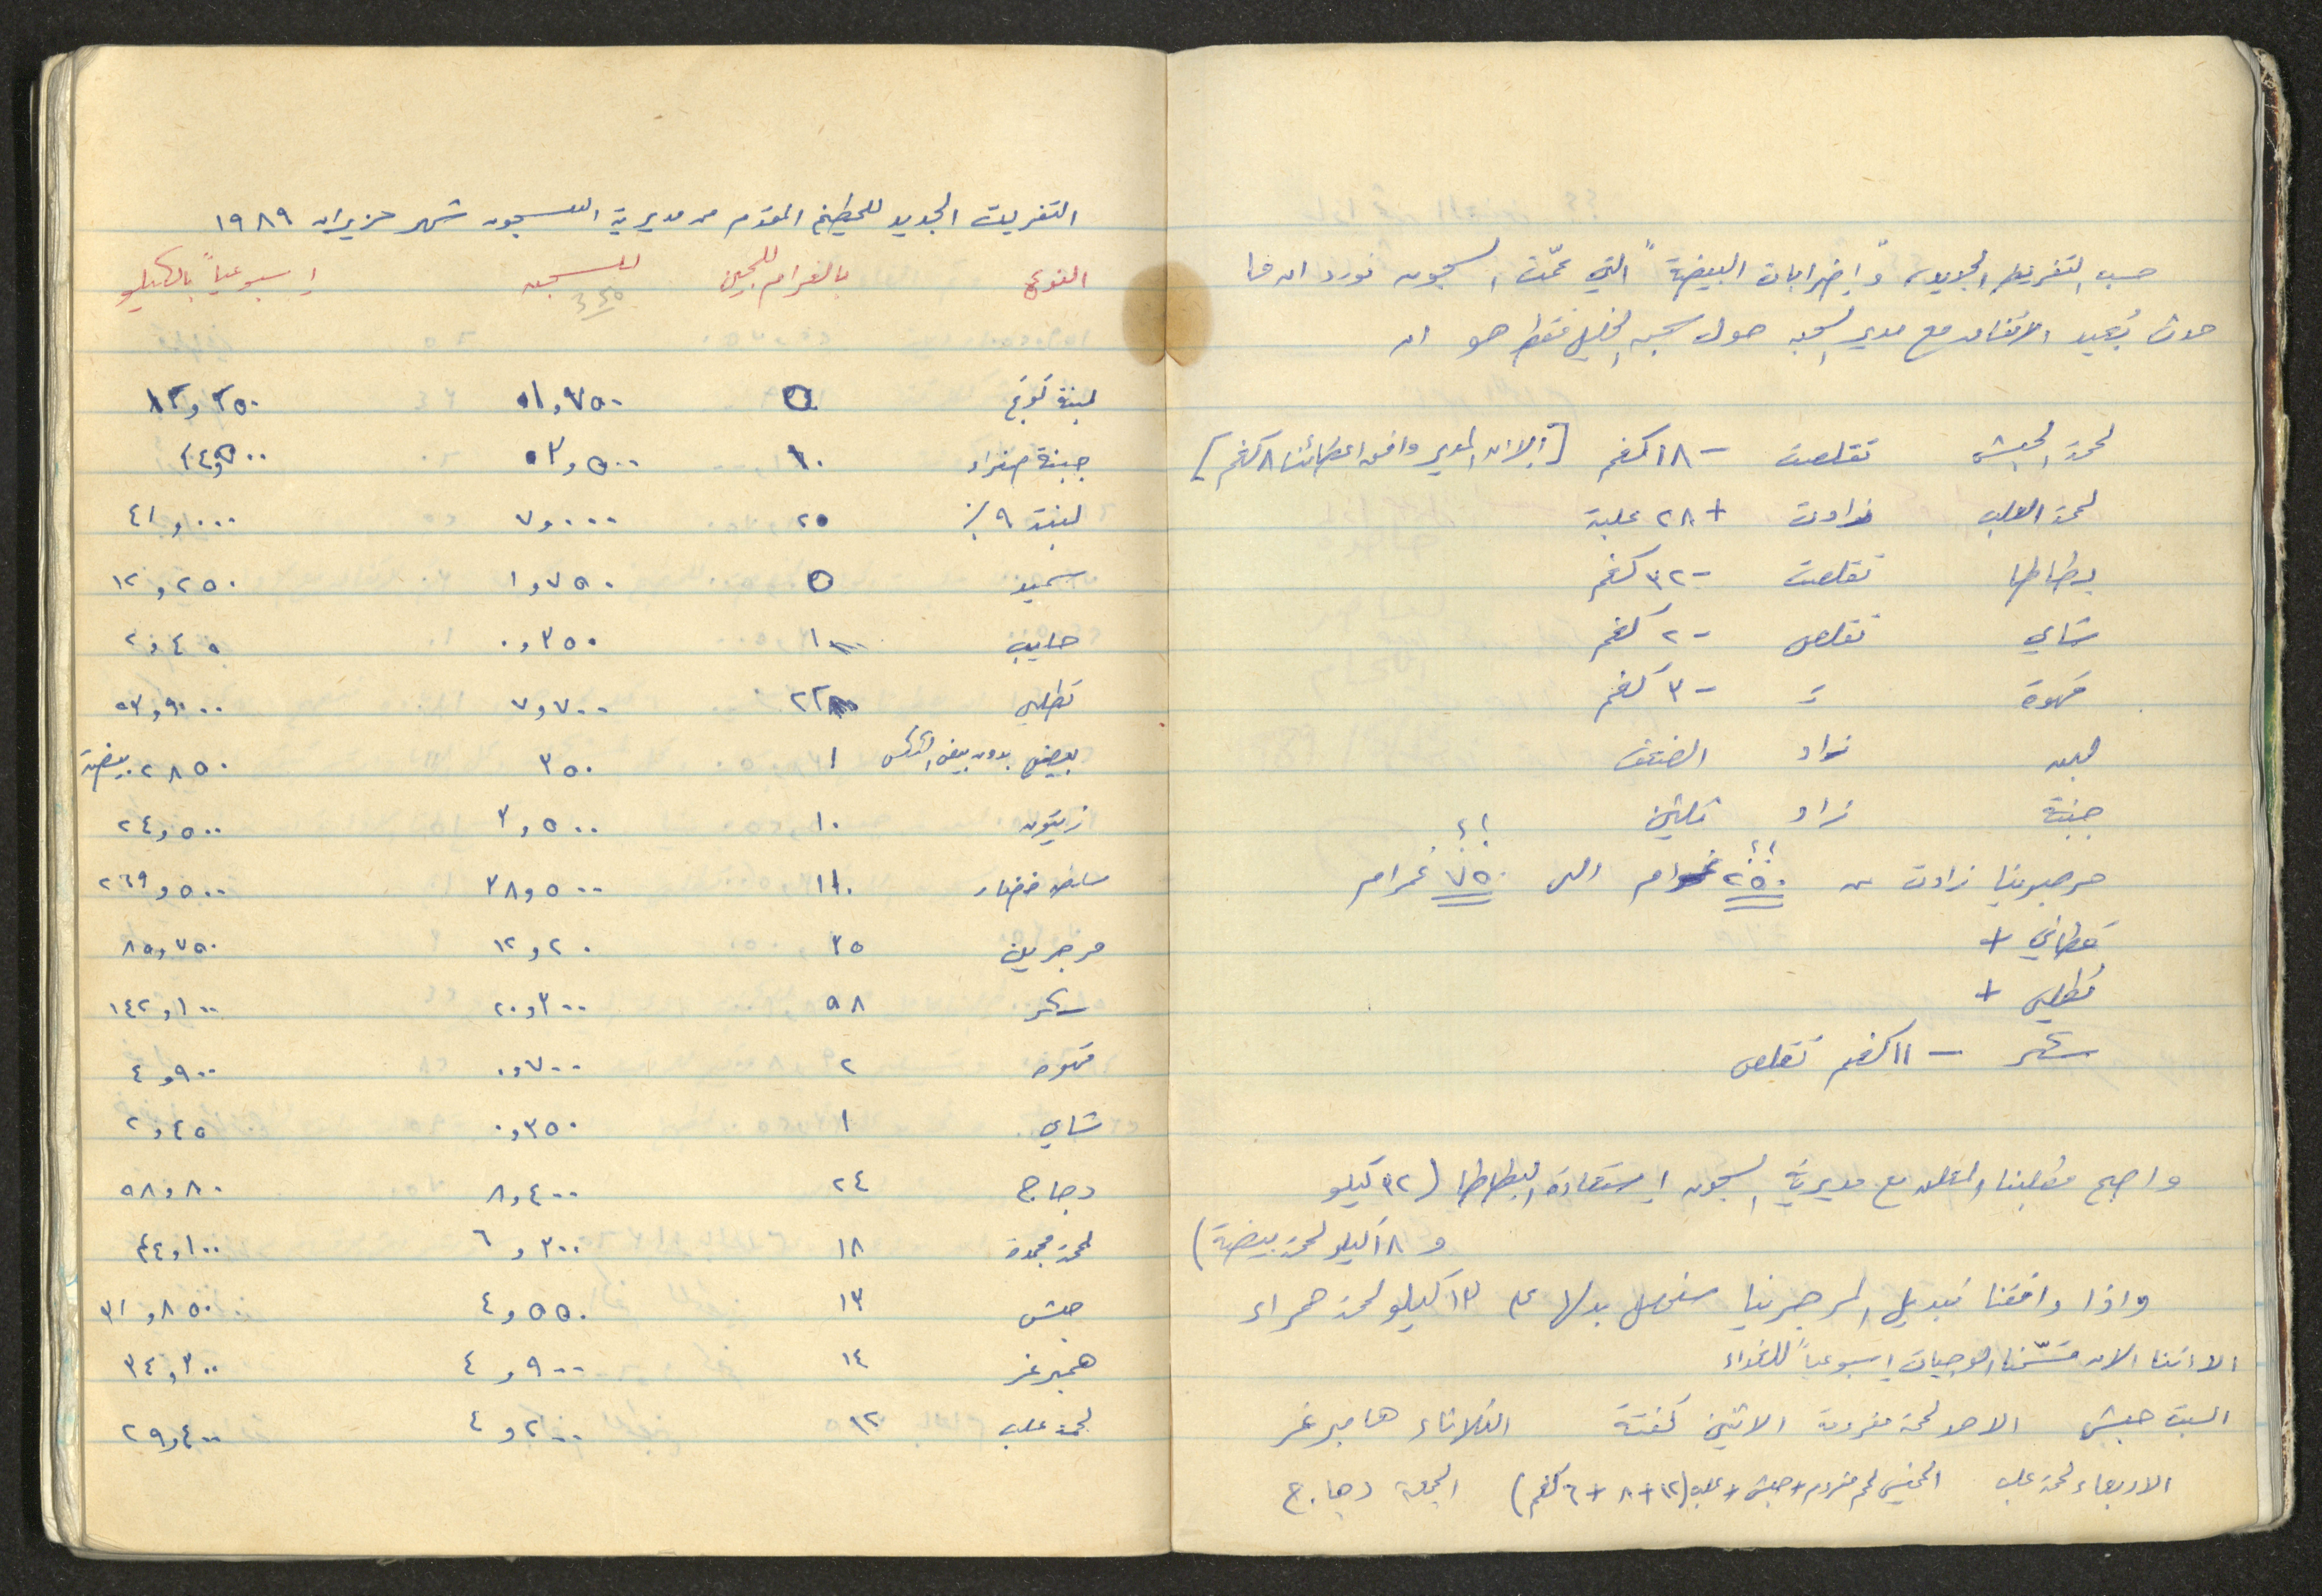 حسب التفريط الجديد، و"إضرابات البيضة" التي عمّت السجون نورد ان ما
حدث بُعيد الاتفاق مع مدير السجن حول سجن الخليل فقط هو ان
لحمة الحبش تقلصت - ١٨ كغم [إلا ان المدير وافق اعطائنا ٨ كغم]
لحمة العلب زادت + ٢٨ علبة
بطاطا تقلصت - ٣٢ كغم
شاي تقلص - ٢ كغم
قهوة = - ٣ كغم
لبن زاد الضعف
جبنة زاد ثلثين
مرجرينا زادت من ٢٥٠ غرام الى ٧٥٠ غرام
؟؟ ؟؟
قطاني +
تطلي +
سكر - ١١ كغم تقلص
واصبح مطلبنا المعلن مع مديرية السجون استعادة البطاطا (٣٢ كيلو
و ١٨ كيلو لحمة بيضة)
واذا وافقنا تبديل المرجرينا سنحصل بدلها على ١٣ كيلو لحمة حمراء
الا اننا الان قسّمنا الوجبات اسبوعياً للغداء
السبت حبش الاحد لحمة مفرومة الاثنين كفتة الثلاثاء هامبرغر
الاربعاء لحمة علب الخميس لحم مفروم + حبش + علب (١٢ + ٨ + ٦ كغم) الجمعة دجاج
التفريت الجديد للمطبخ المقدم من مديرية السجون شهر حزيران ١٩٨٩
النوع بالغرام للسجين للسجن اسبوعياً بالكيلو
350
لبنة كوتج ٥ ١,٧٥٠ ١٢,٢٥٠
جبنة صفراء ١٠ ٣,٥٠٠ ٢٤,٥٠٠
لبنة ٩٪ ٢٠ ٧,٠٠٠ ٤١,٠٠٠
سميد ٥ ١,٧٥٠ ١٢,٢٥٠
حليب ١ ٠,٣٥٠ ٢,٤٥
تطلي ٢٢ ٧,٧٠٠ ٥٣,٩٠٠
بيض بدون بيض الكعك ١ ٣٥٠ ٢٨٥٠ بيضة
زيتون ١٠ ٣,٥٠٠ ٢٤,٥٠٠
خضار ١١٠ ٣٨,٥٠٠ ٢٦٩,٥٠٠
مرجرين ٣٥ ١٢,٢٠ ٨٥,٧٥٠
سكر ٥٨ ٢٠,٣٠٠ ١٤٢,١٠٠
قهوة ٢ ٠,٧٠٠ ٤,٩٠٠
شاي ١ ٠,٣٥٠ ٢,٤٥
دجاج ٢٤ ٨,٤٠٠ ٥٨,٨٠
لحمة مجمدة ١٨ ٦,٣٠٠ ٤٤,١٠٠
حبش ١٣ ٤,٥٥٠ ٣١,٨٥٠
همبرغر ١٤ ٤,٩٠٠ ٣٤,٣٠٠
لحمة علب ١٢ ٤,٢٠٠ ٢٩,٤٠٠